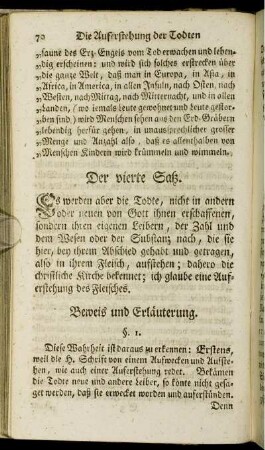 70 Die Auferstehung der Todten
„saune des Ertz-Engels vom Tod erwachen und leben-
„dig erscheinen: und wird sich solches erstrecken über
„die gantze Welt, daß man in Europa, in Asia, in
„Africa, in America, in allen Insuln, nach Osten, nach
„Westen, nach Mittag, nach Mitternacht, und in allen
„Landen, (wo jemals Leute gewohnet und Leute gestor-
„ben sind) wird Menschen sehen aus den Erd-Gräbern
„lebendig herfür gehen, in unaussprechlicher grosser
„Menge und Anzahl also, daß es allenthalben von
„Menschen Kindern wird krümmeln und wimmeln.
Der vierte Satz.
Es werden aber die Todte, nicht in andern
oder neuen von Gott ihnen erschaffenen,
sondern ihren eigenen Leibern, der Zahl und
dem Wesen oder der Substantz nach, die sie
hier, bey ihrem Abschied gehabt und getragen,
also in ihrem Fleisch, aufstehen; dahero die
christliche Kirche bekennet; ich glaube eine Auf-
erstehung des Fleisches.
Beweis und Erläuterung.
§. 1.
Diese Wahrheit ist daraus zu erkennen: Erstens,
weil die H. Schrift von einem Aufwecken und Aufste-
hen, wie auch einer Auferstehung redet. Bekämen
die Todte neue und andere Leiber, so könte nicht gesa-
get werden, daß sie erwecket worden und auferstünden.
Denn